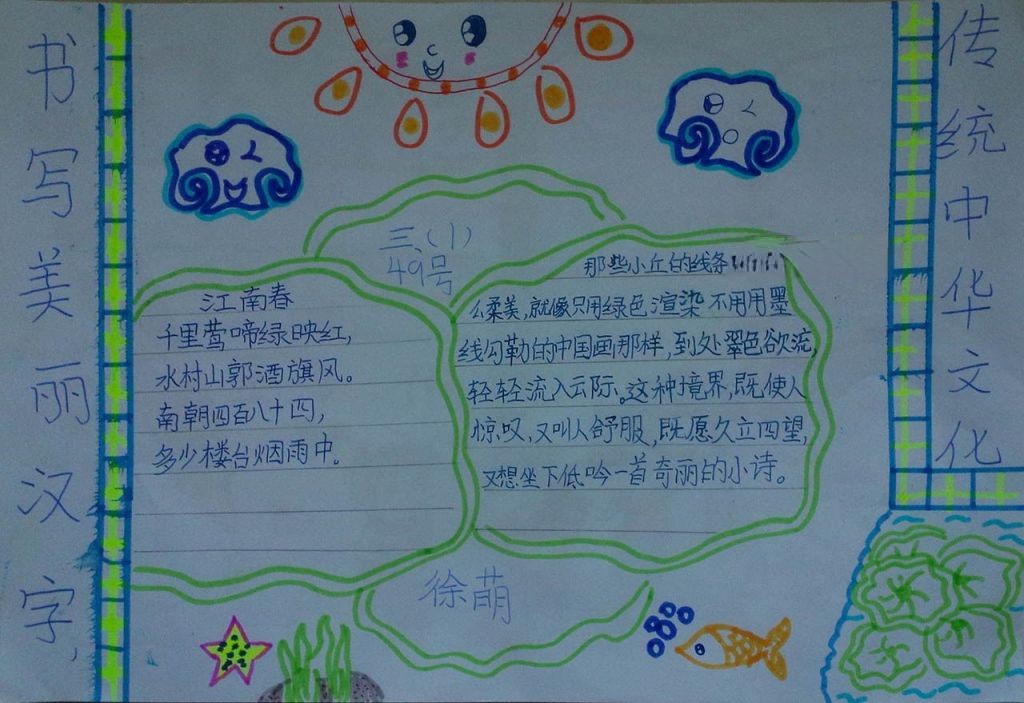 书写美丽汉字,
传统中华文化
三、(1)
49号
江南春
千里莺啼绿映红,
水村山郭酒旗风。
南朝四百八十四,
多少楼台烟雨中。
那些小丘的线条
么柔美,就像只用绿色渲染不用用墨
线勾勒的中国画那样,到处翠色欲流,
轻轻流入云际。这种境界,既使人
惊叹,又叫人舒服,既愿久立四望,
又想坐下低吟一首奇丽的小诗。
徐萌